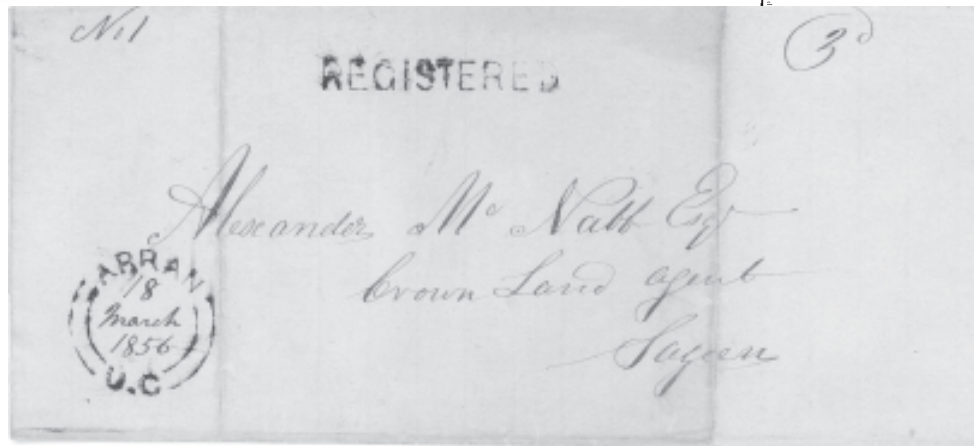 No 1
3d
REGISTERED
Alexander Mc Nabb Esqr
Crown Land agent
Saugeen
ARRAN
18
March
1856
U.C